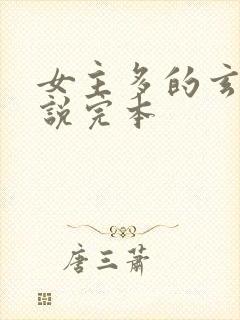 女主多的玄
説完本
唐三萧